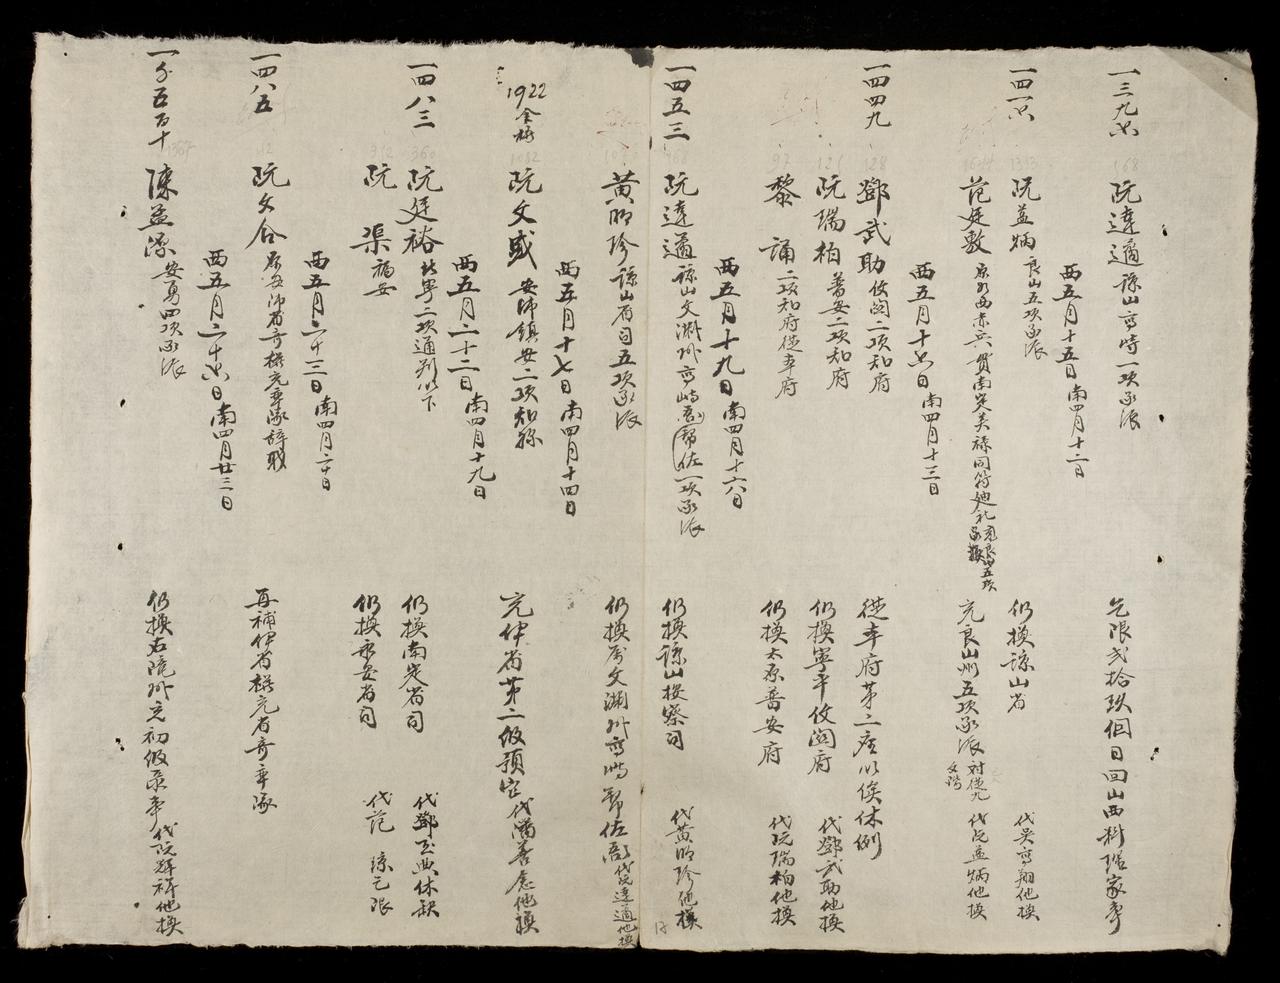 一三九七
阮達適 諒山高峙一項承派
乞限弍拾玖個日回山西料理家事
西五月十五日南四月十二日
一四一七
阮益炳 良山五項承派
仍換諒山省
代吳高翔他換
范廷敷
充良山州五項承派
代阮益炳他換
西五月十七日南四月十三日
一四四九
鄧武助 攸關二項知府
從本府第二座以俟休例
阮瑞柏 普安二項知府
仍換寧平攸關府
代鄧武助他換
黎誦 二項知府從本府
仍換太原普安府
代阮瑞柏他換
西五月十九日南四月十六日
一四五三
阮達適 諒山文淵州高峙衙幫佐一項承派
仍換諒山按察司
代黃明珍他換
黃明珍 諒山省司五項承派
仍換為文淵州高峙幫佐衙
代阮達適他換
西五月十七日南四月十四日
1922
阮文盛 安沛鎮安二項知縣
充伊省第二級預定
代潘善念他換
西五月二十二日南四月十九日
一四八三
阮廷裕 北寧二項通判以下
仍換南定省司
代鄧玉典休缺
阮渠 福安
仍換永安省司
代范琼乞限
西五月二十三日南四月二十日
一四八五
阮文合
再補伊省權充省奇率隊
西五月二十七日南四月廿三日
一千五百十
陳益深 安勇四項承派
仍換右隴州充初級录事
代阮輝耕他換